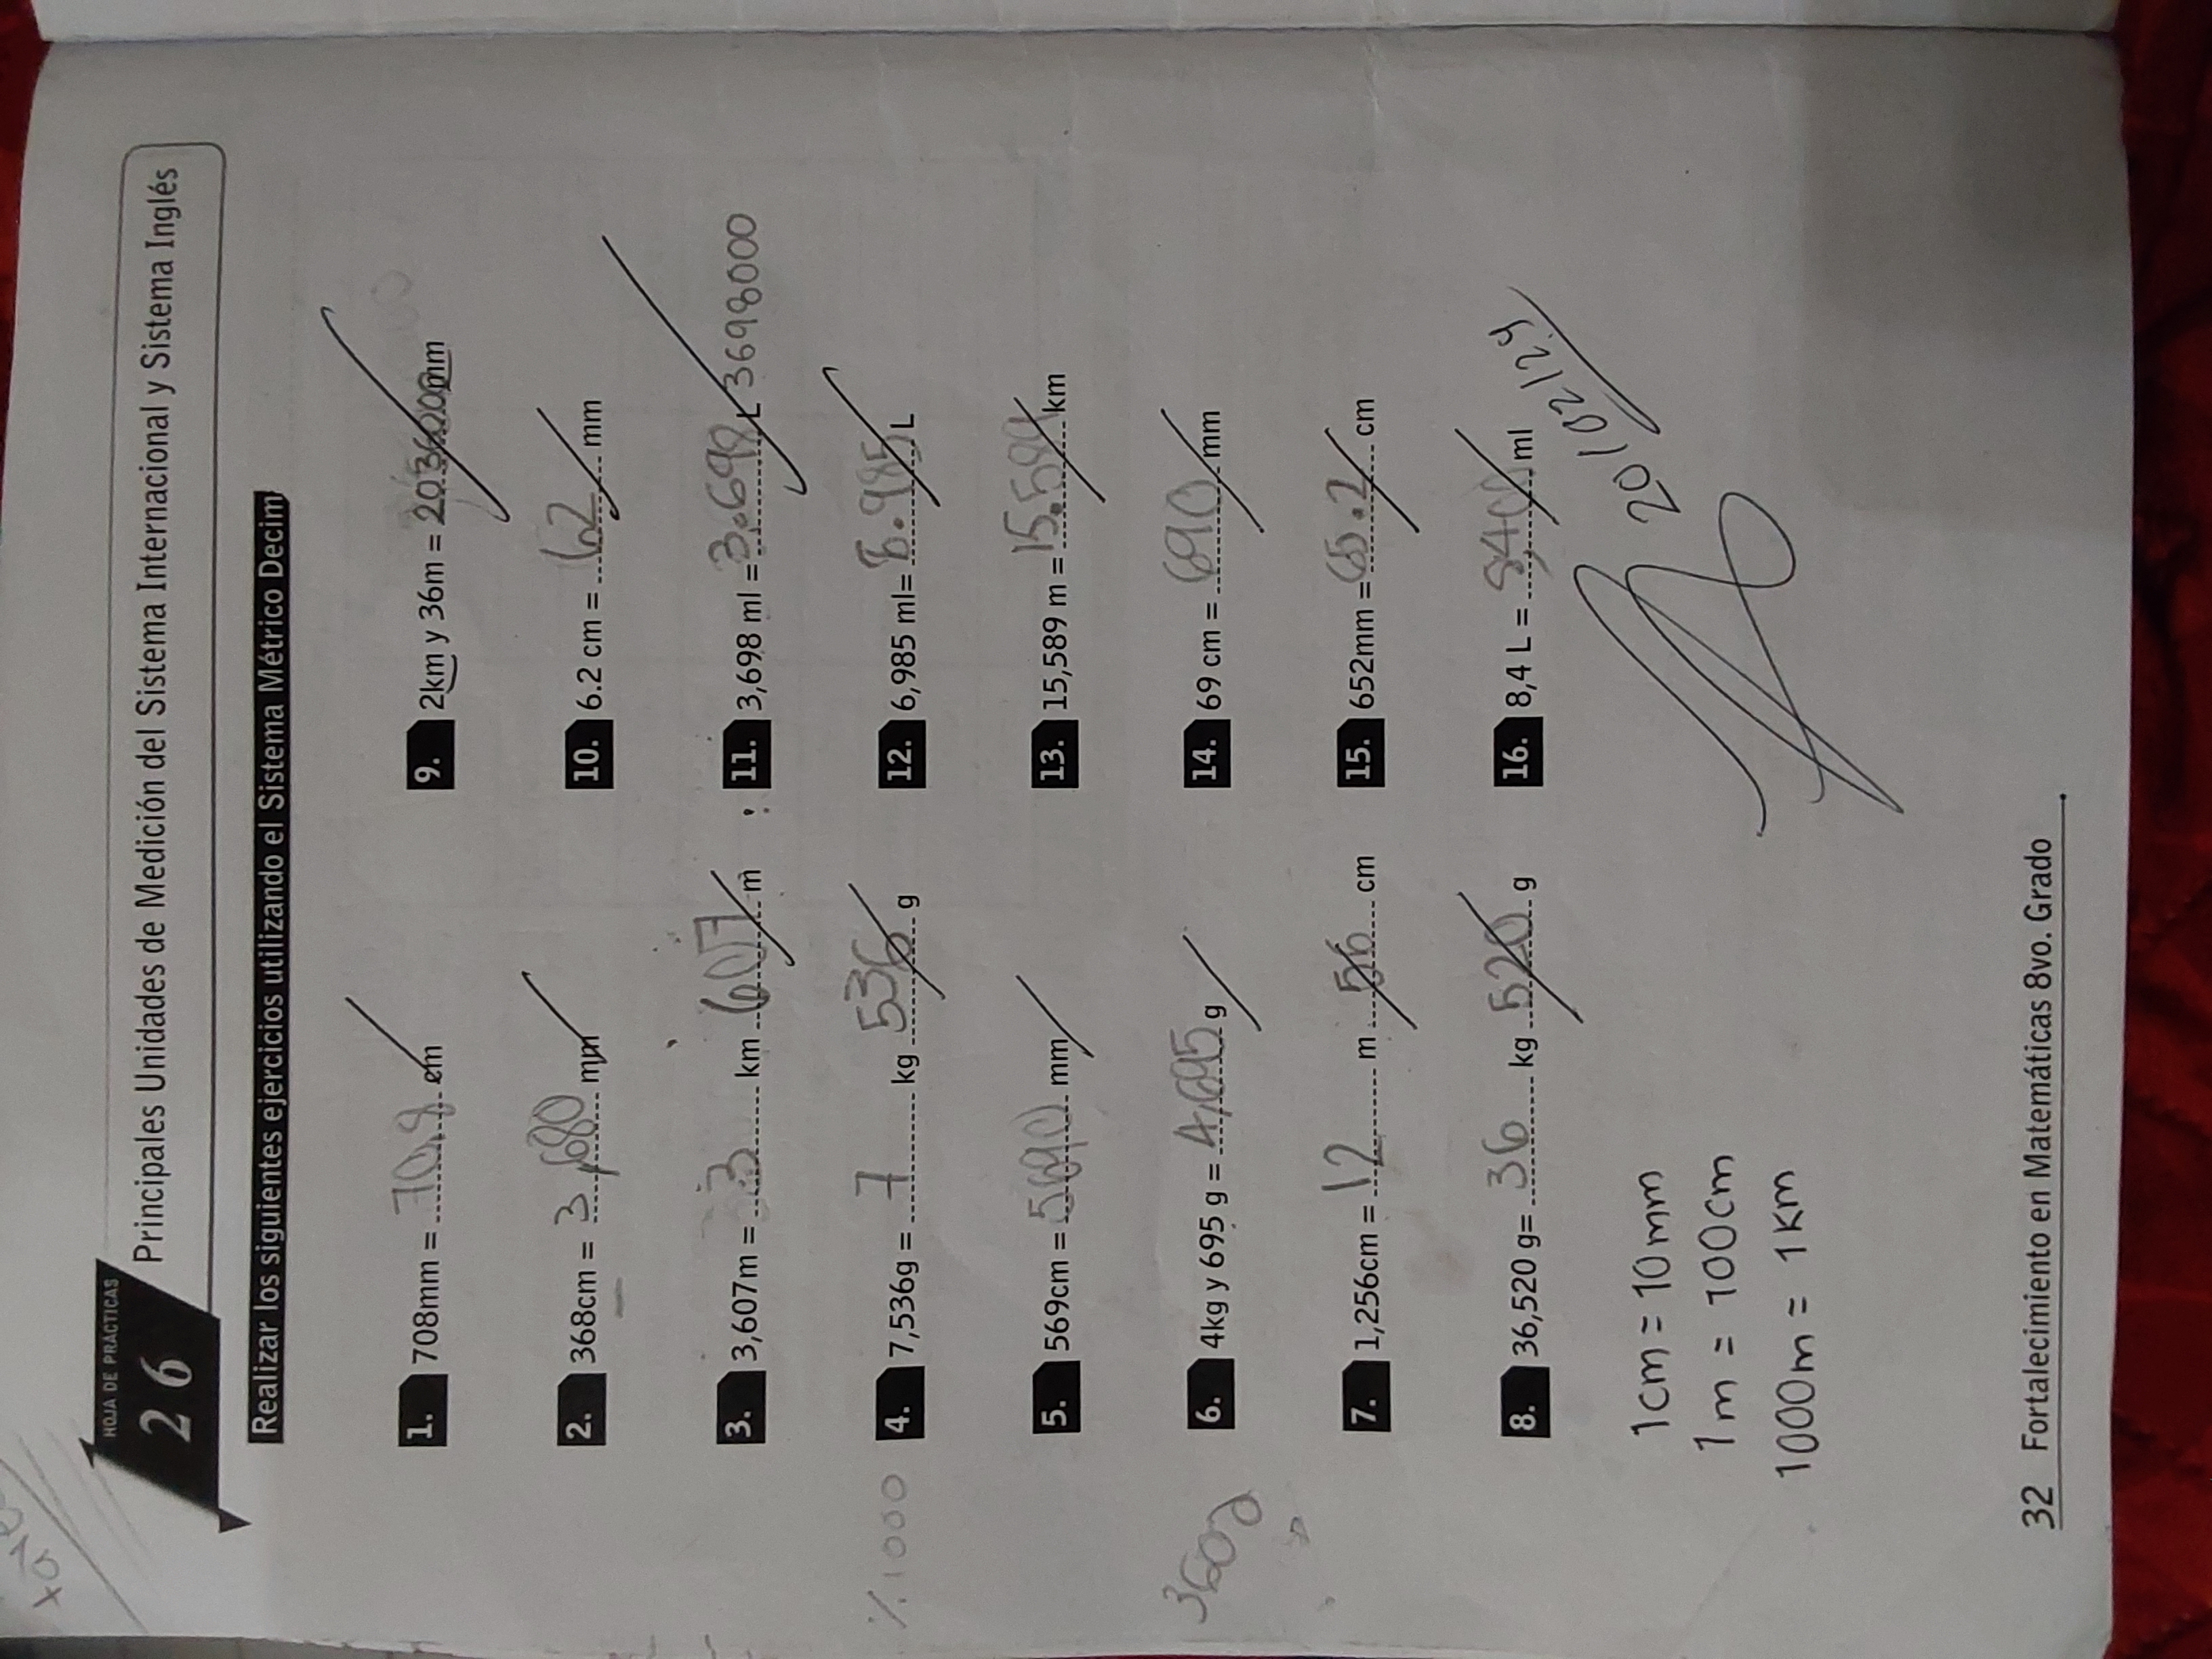 HOJA DE PRÁCTICAS
26
Principales Unidades de Medición del Sistema Internacional y Sistema Inglés
Realizar los siguientes ejercicios utilizando el Sistema Métrico Decim
1. 708mm = 70.8 cm
2. 368cm = 3,680 mm
3. 3,607m = 3 km 607 m
%1000
4. 7,536g = 7 kg 536 g
5. 569cm = 5690 mm
3602
6. 4kg y 695 g = 4,695 g
7. 1,256cm = 12 m 56 cm
8. 36,520 g= 36 kg 520 g
1cm = 10mm
1m = 100cm
1000m = 1Km
9. 2km y 36m = mm
10. 6.2 cm = 62 mm
11. 3,698 ml = 3.698 L 3698000
12. 6,985 ml= 6.985 L
13. 15,589 m = 15.589 km
14. 69 cm = 690 mm
15. 652mm = 65.2 cm
16. 8,4 L = 8400 ml
32 Fortalecimiento en Matemáticas 8vo. Grado